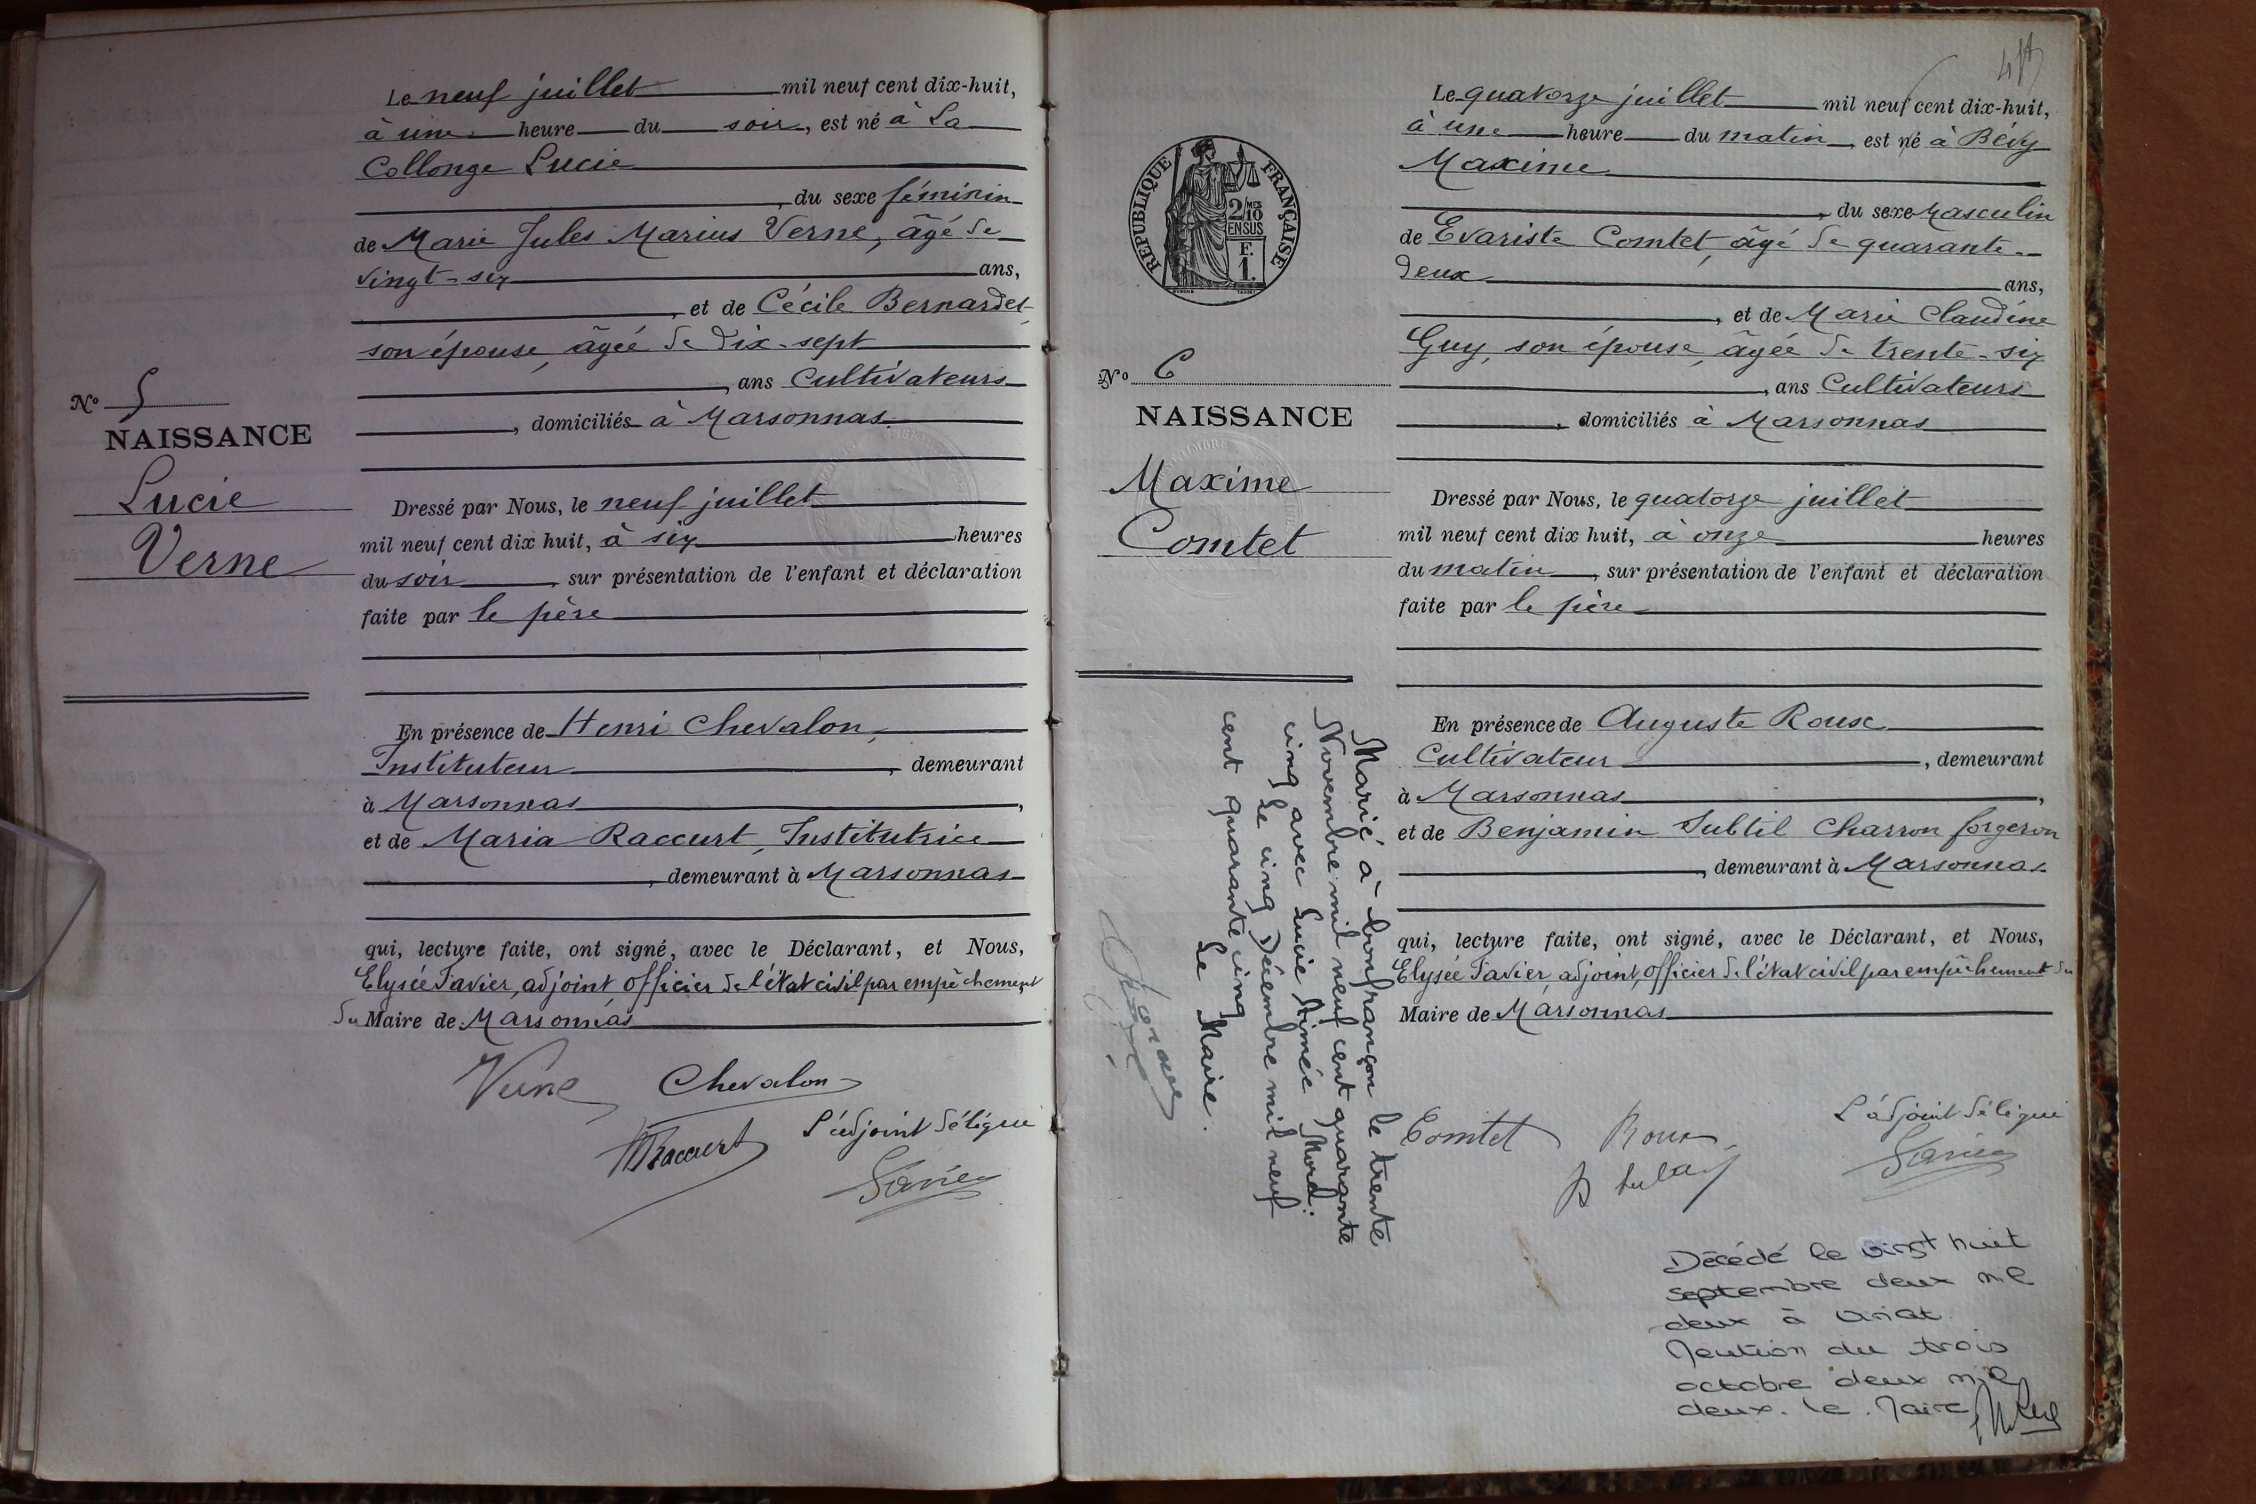 N° 5
NAISSANCE
Lucie
Verne
Le neuf juillet mil neuf cent dix-huit,
à une heure du soir, est né à La
Collonge Lucie
, du sexe féminin
de Marie Jules Marius Verne, âgé de
vingt-six ans,
, et de Cécile Bernardet,
son épouse, âgée de dix-sept
, ans Cultivateurs
, domiciliés à Marsonnas
Dressé par Nous, le neuf juillet
mil neuf cent dix huit, à six heures
du soir, sur présentation de l'enfant et déclaration
faite par le père
En présence de Henri Chevalon,
Instituteur, demeurant
à Marsonnas,
et de Maria Raccurt, Institutrice
, demeurant à Marsonnas
qui, lecture faite, ont signé, avec le Déclarant, et Nous,
Elysée Favier, adjoint, officier de l'état civil par empêchement
du Maire de Marsonnas
Verne Chevalon
MRaccurt L'adjoint délégué
Favier
RÉPUBLIQUE FRANÇAISE
2/10 MES
EN SUS
F.
1.
N° 6
NAISSANCE
Maxime
Comtet
Marié à Confrançon le trente
Novembre mil neuf cent quarante
cinq avec Lucie Aimée Morel.
Le cinq Décembre mil neuf
cent quarante cinq
Le Maire.
Le quatorze juillet mil neuf cent dix-huit,
à une heure du matin, est né à Bévy
Maxime
, du sexe Masculin
de Evariste Comtet, âgé de quarante-
deux ans,
, et de Marie Claudine
Guy, son épouse, âgée de trente-six
, ans Cultivateurs
, domiciliés à Marsonnas
Dressé par Nous, le quatorze juillet
mil neuf cent dix huit, à onze heures
du matin, sur présentation de l'enfant et déclaration
faite par le père
En présence de Auguste Roux
Cultivateur, demeurant
à Marsonnas,
et de Benjamin Subtil Charron forgeron
, demeurant à Marsonnas
qui, lecture faite, ont signé, avec le Déclarant, et Nous,
Elysée Favier, adjoint, officier de l'état civil par empêchement du
Maire de Marsonnas
Comtet Roux L'adjoint délégué
Favier
Décédé le vingt huit
septembre deux mil
deux à Viriat.
Mention du trois
octobre deux mil
deux. Le Maire